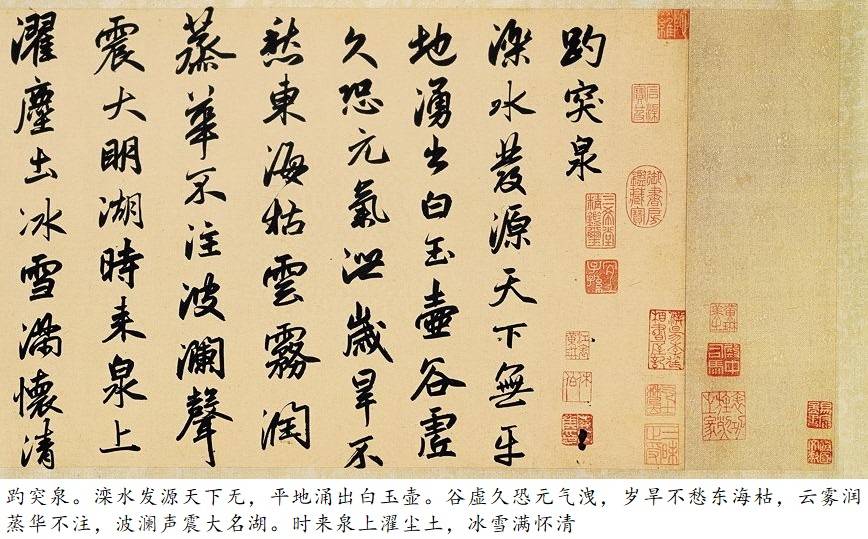 趵突泉
濼水發源天下無平
地湧出白玉壺谷虛
久恐元氣泄歲旱不
愁東海枯雲霧潤
蒸華不注波瀾聲
震大明湖時來泉上
濯塵土冰雪滿懷清
御書房鑑藏寶
三希堂精鑑璽
宜子孫
趵突泉。滦水发源天下无，平地涌出白玉壶。谷虚久恐元气洩，岁旱不愁东海枯，云雾润
蒸华不注，波澜声震大名湖。时来泉上濯尘土，冰雪满怀清